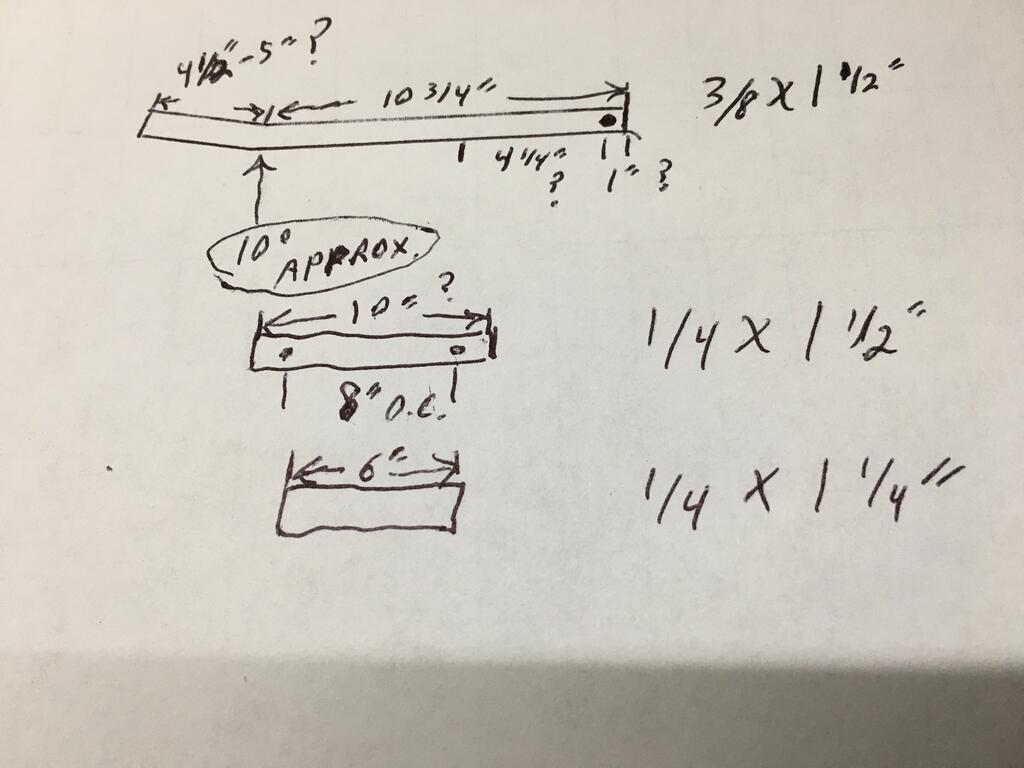 4 1/2" - 5" ?
10 3/4"
3/8 X 1 1/2"
4 1/4" ?
1" ?
10° APPROX.
10" ?
1/4 X 1 1/2"
8" O.C.
6"
1/4 X 1 1/4"